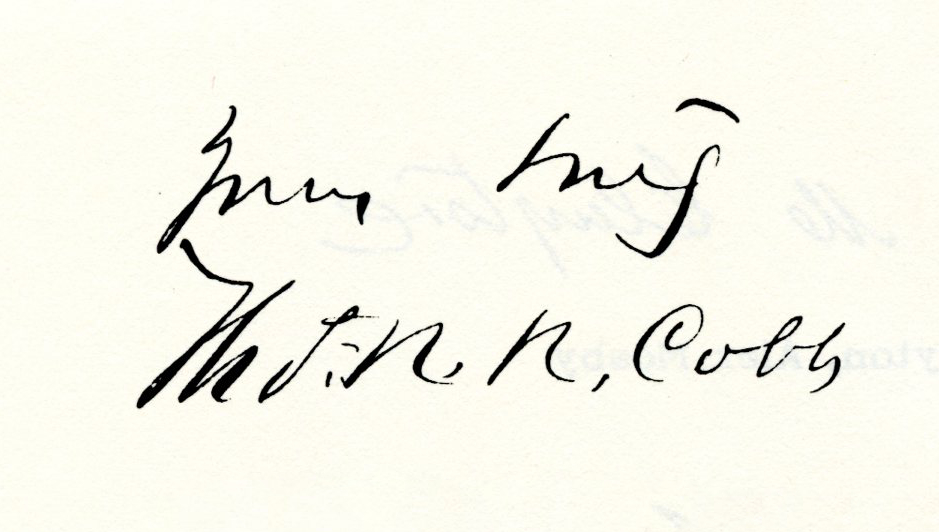 Yours truly
Thos. R. R. Cobb